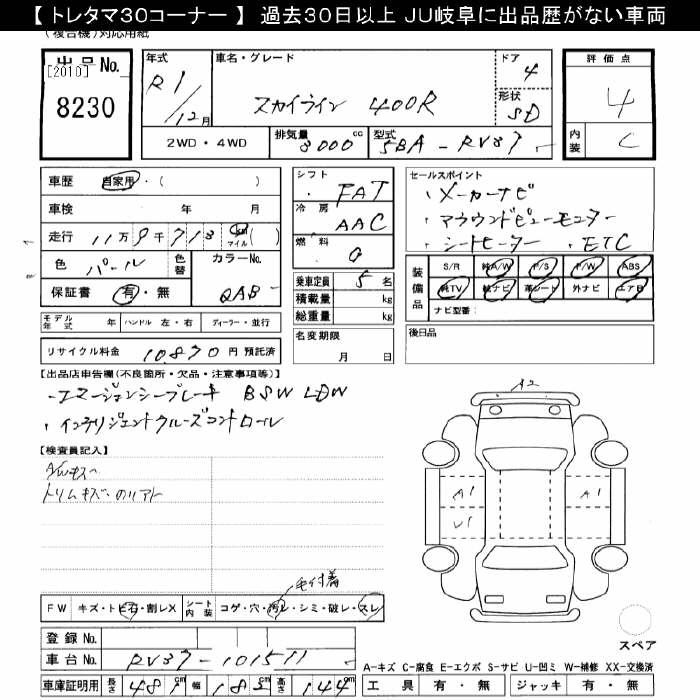 【 トレタマ30コーナー 】 過去30日以上 JU岐阜に出品歴がない車両
(複合機)対応用紙
出品No.
[2010]
8230
年式
R1/12月
車名・グレード
スカイライン 400R
ドア
4
形状
SD
評価点
4
内装
C
2WD・4WD
排気量 3000 cc
型式 5BA - RV37
車歴 自家用・( )
車検 年 月
走行 11万9千713 Km マイル ( )
色 パール
色替
カラーNo.
QAB
保証書 有・無
シフト
FAT
冷房
AAC
燃料
G
乗車定員 5 名
積載量 kg
総重量 kg
セールスポイント
・メーカーナビ
・アラウンドビューモニター
・シートヒーター ・ETC
装備品
S/R 純A/W P/S P/W ABS
純TV 純ナビ 革シート 外ナビ エアB
ナビ型番:
モデル年式 年 ハンドル 左・右 ディーラー・並行
リサイクル料金 10,870 円 預託済
名変期限
月 日
後日品
【出品店申告欄(不良箇所・欠品・注意事項等)】
・エマージェンシーブレーキ BSW LDW
・インテリジェントクルーズコントロール
【検査員記入】
A/Wキズ
トリムキズ・
A2
A1
A1
U1
毛付着
FW キズ・トビ石・割レX
シート内装 コゲ・穴・汚レ・シミ・破レ・スレ
登録No.
車台No. RV37-101511
車庫証明用 長さ 481 cm 幅 182 cm 高さ 144 cm
スペア
A-キズ C-腐食 E-エクボ S-サビ U-凹ミ W-補修 XX-交換済
工具 有・無 ジャッキ 有・無